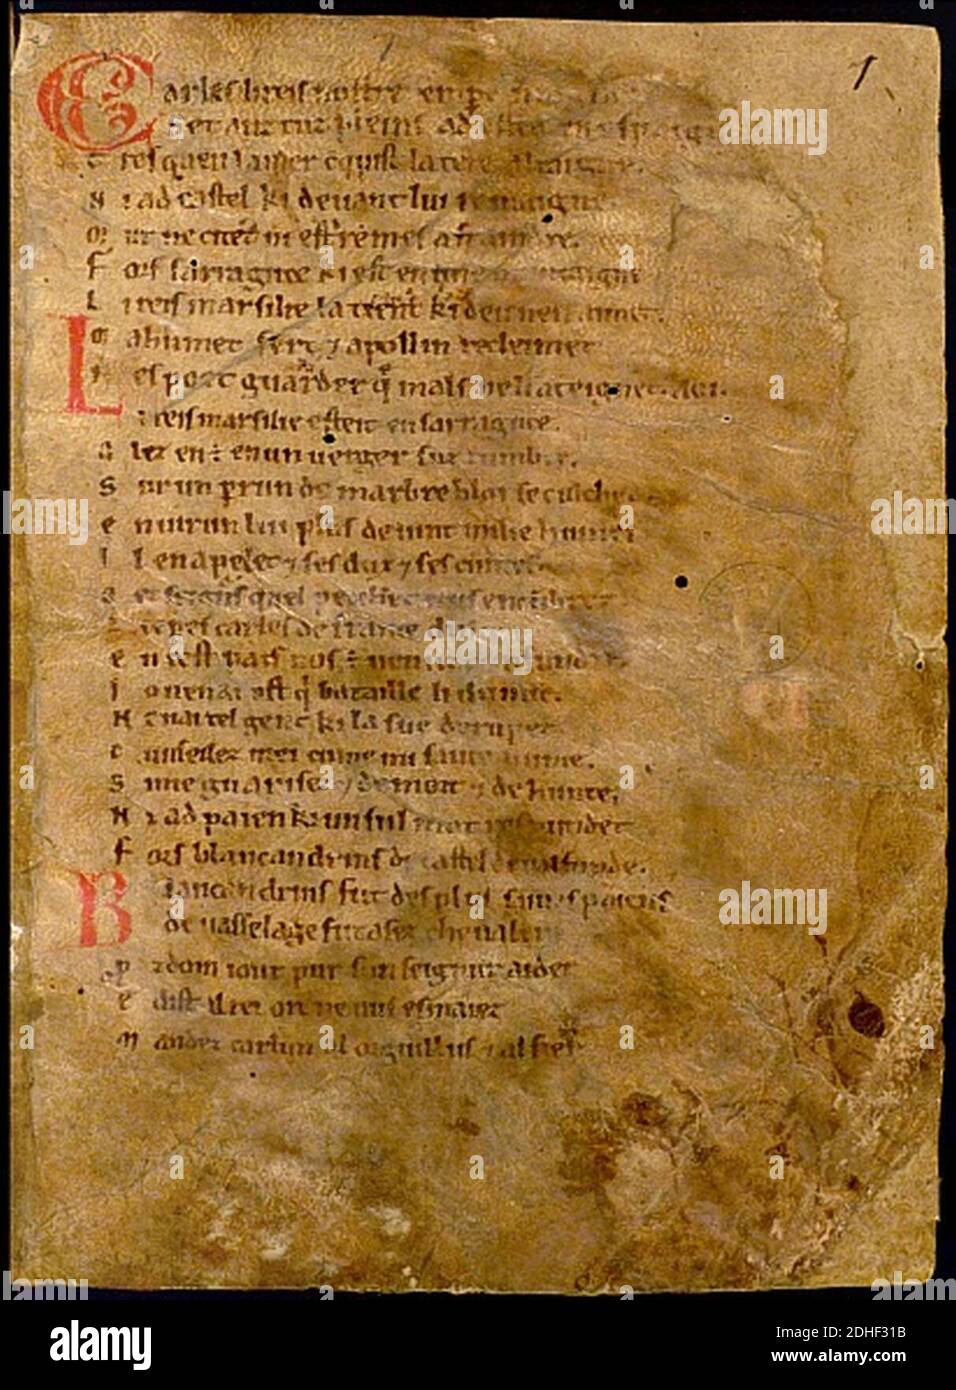 1
Carles li reis nostre emp
Set anz tuz pleins ad estet en espaigne
Tresquen la mer cquist la tere altaigne.
Ni ad castel ki devant lui remaigne.
Mur ne citet ni est remes a fraindre.
Fors sarraguce ki est en une muntaigne
Li reis marsilie la tent ki deu nen aimet.
Mahumet sert 7 apollin recleimet
Nes poet guarder q mals ne li ateignet. aoi.
Li reis marsilie esteit en sarraguce.
Alez en est en un verger suz lumbre.
Sur un perrun de marbre bloi se culchet
Envirun lui plus de vint milie humes
Il en apelet 7 ses dux 7 ses cuntes.
Oez seignurs quel pecchet nus encumbret
Li emperes carles de france dulce
En cest pais nos est venuz cunfundre.
Jo nen ai ost q bataille li dunne.
Nen ai tel gent ki la sue derumpet
Cunseilez mei cume mi saive hume.
Si me guarisez 7 de mort 7 de hunte.
Ni ad paien ki un sul mot respundet
Fors blancandrins de castel de valfunde.
Blancandrins fut des plus saives paiens
De vasselage fut asez chevaler
Prdom i out pur sun seignur aider
E dist al rei or ne vus esmaiez
Mandez carlun al orguillus 7 al fier
alamy
Image ID: 2DHF31B
www.alamy.com